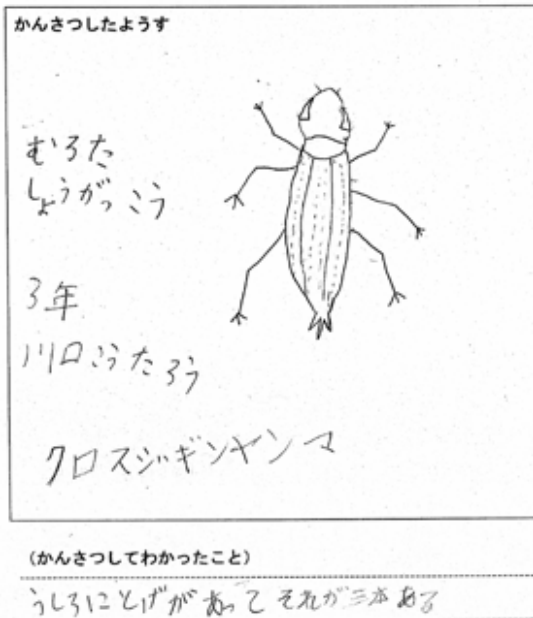 かんさつしたようす
むろた
しょうがっこう
3年
川口こうたろう
クロスジギンヤンマ
(かんさつしてわかったこと)
うしろにとげがあってそれが三本ある